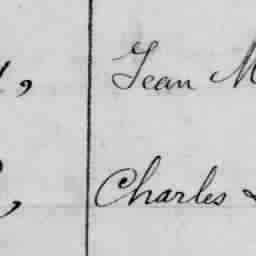 Jean M
Charles